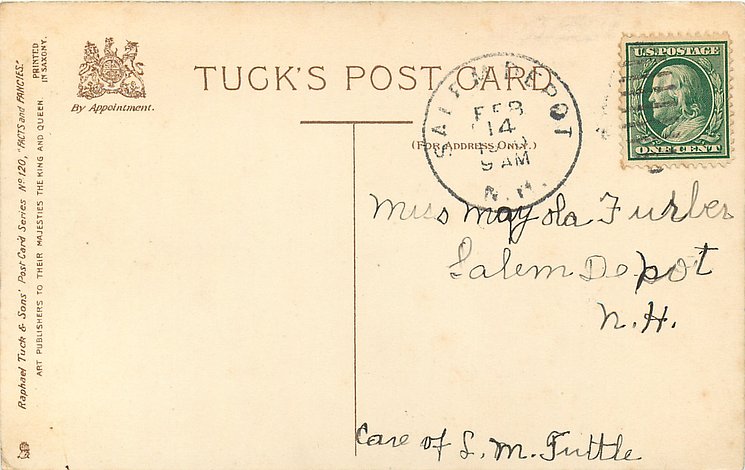 TUCK'S POST CARD
By Appointment.
(FOR ADDRESS ONLY.)
SALEM DEPOT
FEB
14
9 AM
N.H.
U.S. POSTAGE
ONE CENT
Miss Mayola Furber
Salem Depot
N.H.
Care of L. M. Tuttle
Raphael Tuck & Sons' Post Card Series Nº 120, "FACTS and FANCIES."
ART PUBLISHERS TO THEIR MAJESTIES THE KING AND QUEEN.
PRINTED
IN SAXONY.